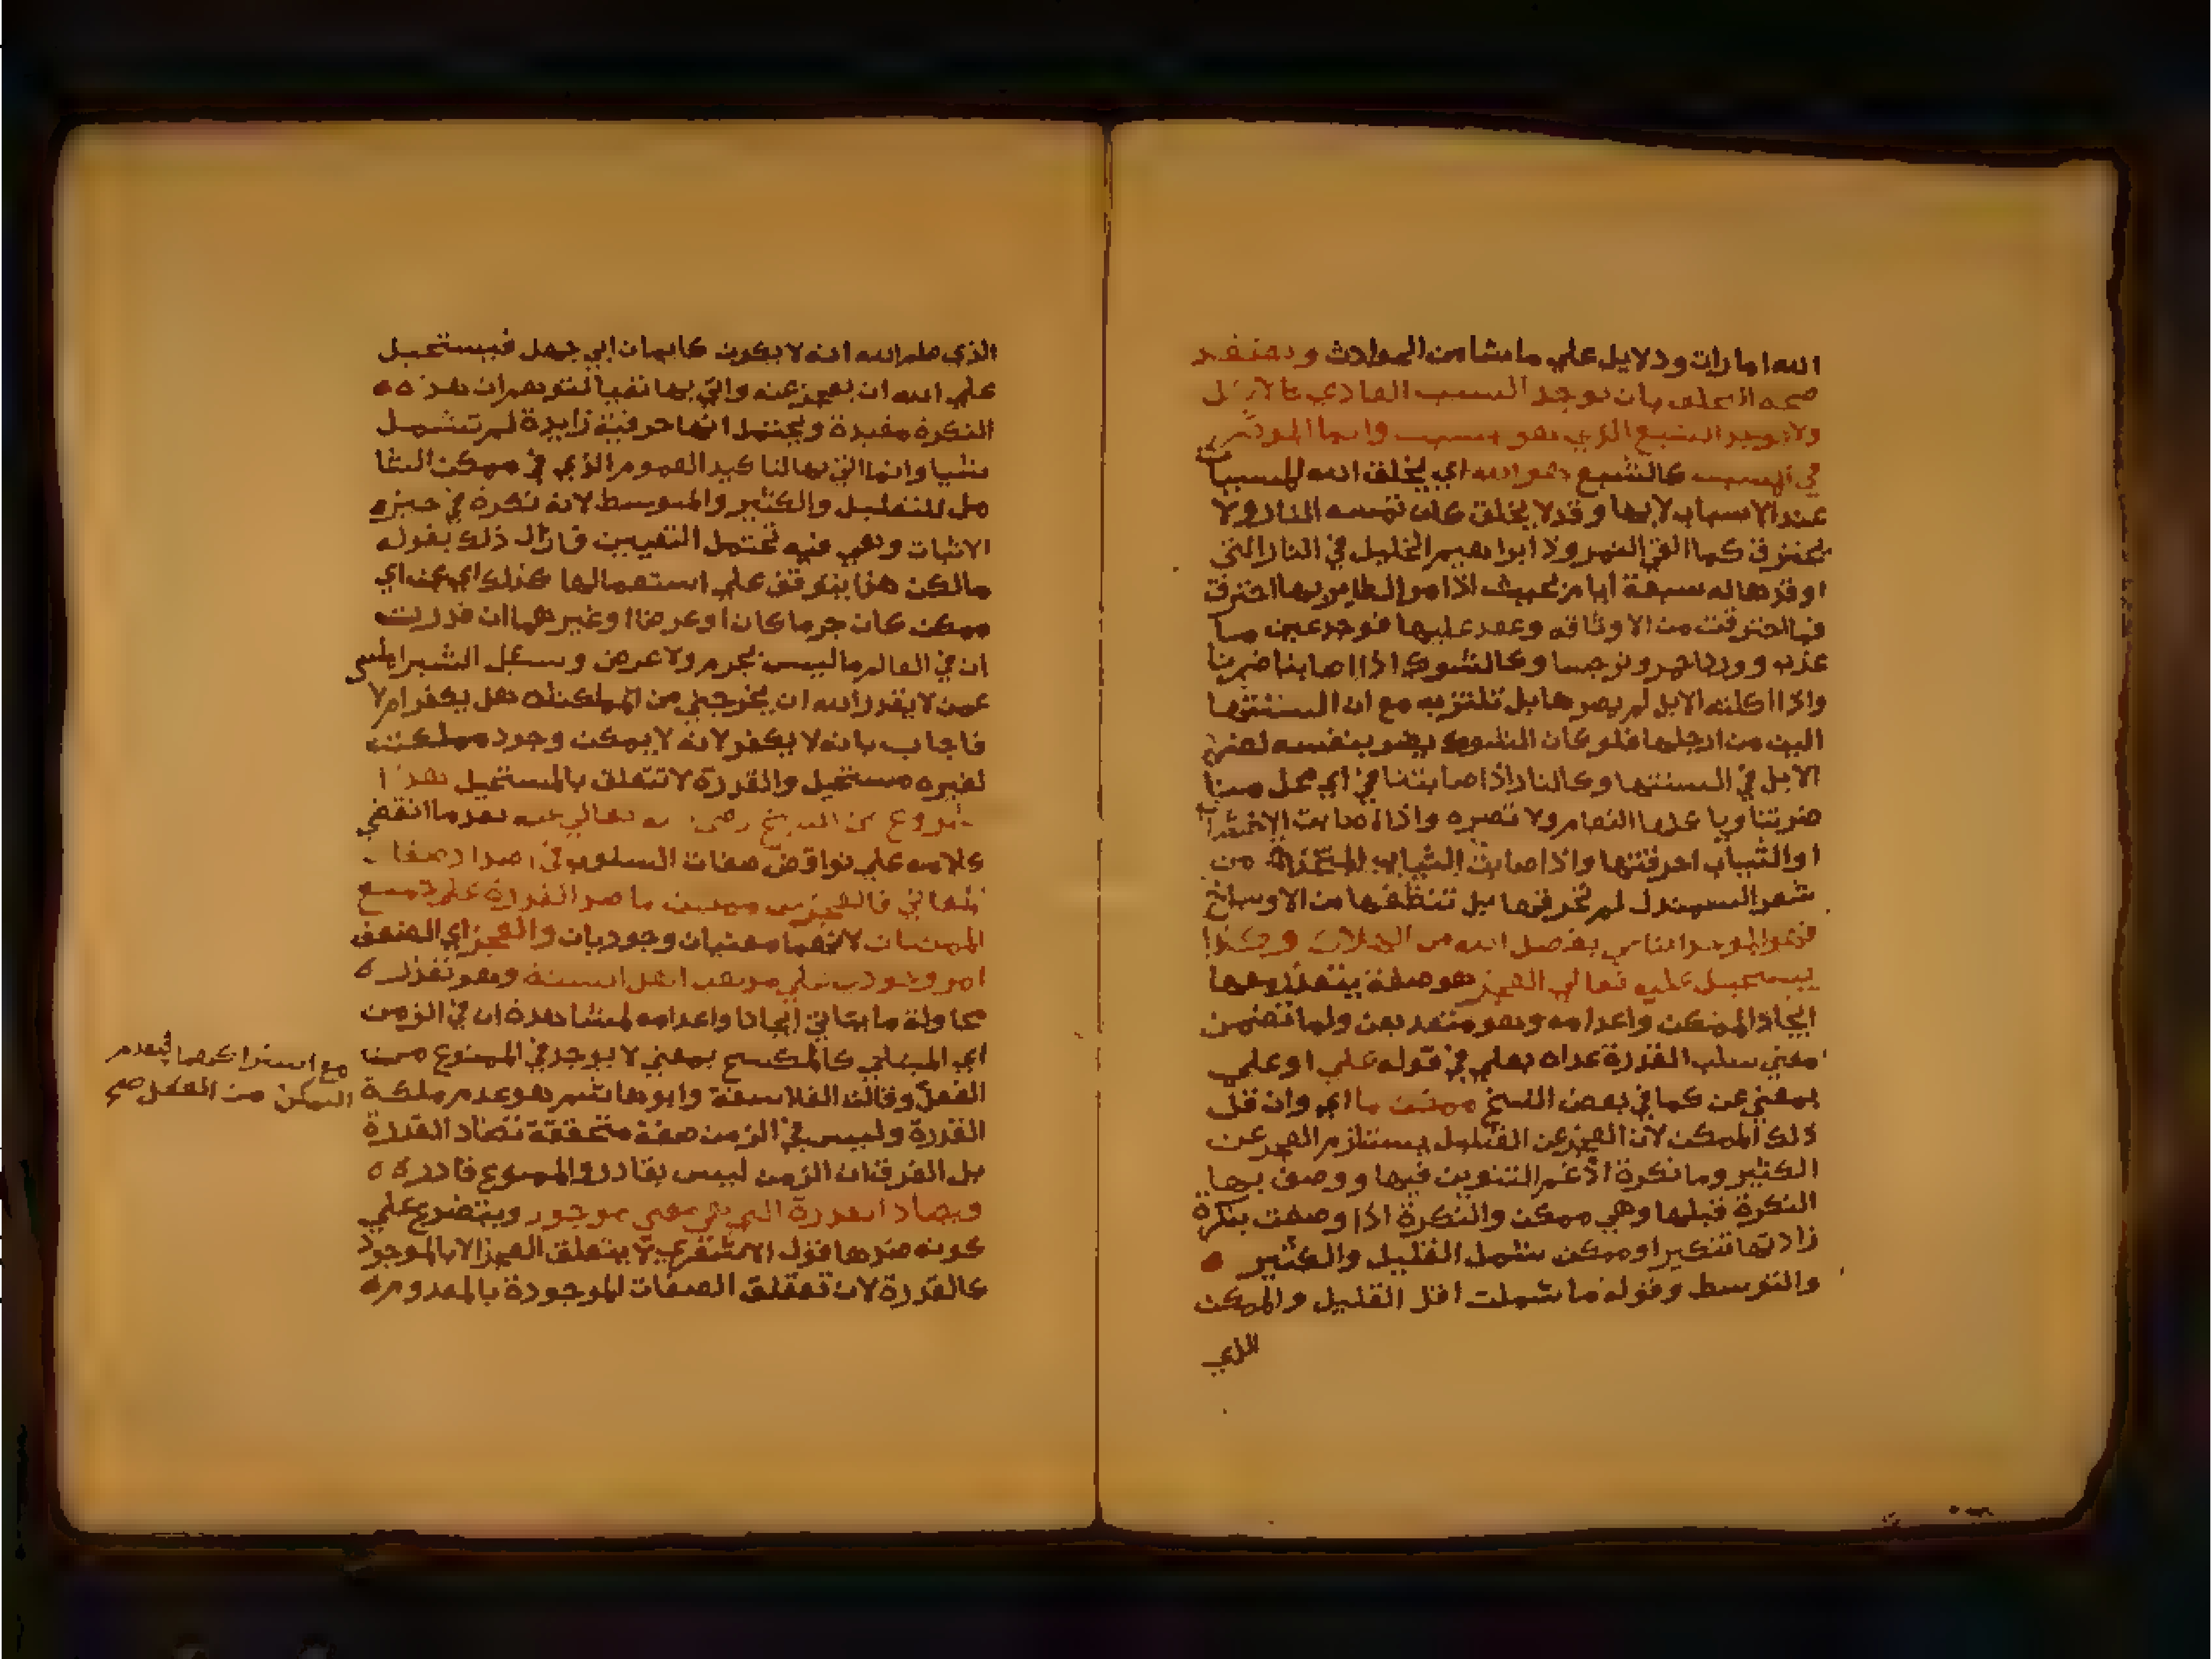 الله امارات ودلايل علي ما يشا من الحوادث ويعتقد
صحة التخلف بان يوجد السبب العادي كالاكل
ولا يوجد الشبع الذي هو مسبب وانما الموثر
في المسبب كالشبع هو الله اي يخلق الله المسببات
عند الاسباب لا بها وقد لا يخلق كان تمسه النار ولا
يحترق كما القي النمرود ابراهيم الخليل في النار التي
اوقدها له سبعة ايام بحيث اذا مر الطاير بها احترق
فما احترقت منه الا وثاقه وعمد عليها فوجد عين ما
عذب وورد احمر ونرجسا وكالشوك اذا اصابنا ضرنا
واذا اكلته الابل لم يضرها بل تلتذ به مع ان السنتها
الين من ارجلها فلو كان الشوك يضر بنفسه لضر
الابل في السنتها وكالنار اذا اصابتنا في اي محل منا
ضرتنا وياكلها النعام ولا تضره واذا اصابت الاخشاب
او الثياب احرقتها واذا اصابت الثياب المتخذة من
شعر السمندل لم تحرقها بل تنظفها من الاوساخ
فهو الموحد الناجي بفضل الله من الهلاك وكذا
يستحيل عليه تعالي العجز هو صفة يتعذر معها
ايجاد الممكن واعدامه وهو متعد بعن ولما تضمن
معني سلب القدرة عداه بعلي في قوله علي او علي
بمعني عن كما في بعض النسخ ممكن ما اي وان قل
ذلك الممكن لان العجز عن القليل يستلزم العجز عن
الكثير وما نكرة ادغم التنوين فيها ووصف بها
النكرة قبلها وهي ممكن والنكرة اذا وصفت بنكرة
زادتها تنكيرا وممكن يشمل القليل والكثير
والتوسط وقوله ما شملت اقل القليل والممكن
الذي
الذي علم الله انه لا يكون كايمان ابي جهل فيستحيل
علي الله ان يعجز عنه واتي بها نفيا لتوهم ان هذه
النكرة مفيدة ويحتمل انها حرفية زايدة لم تشمل
شليا وانما اتي بها لتاكيد العموم الذي في ممكن الشا
مل للتقليل والكثير والمتوسط لانه نكرة في حيز
الاثبات وهي فيه تحتمل التعيين فازال ذلك بقوله
ما لكن هذا يتوقف علي استعمالها كذلك اي عن اي
ممكن كان جرما كان او عرضا او غيرهما ان قدرت
ان في العالم ما ليس بجرم ولا عرض وسيل الشبراملسي
عمن لا يقدر الله ان يخرجني من المملكة هل يكفر ام لا
فاجاب بانه لا يكفر لانه لا يمكن وجود مملكة
لغيره مستحيل والقدرة لا تتعلق بالمستحيل هذا
شروع من الشيخ رضي الله تعالي عنه بعد ما انقضي
كلامه علي نواقض صفات السلوب في اضداد صفات
المعاني فالعجز عن ممكن ما ضد القدرة علي جميع
الممكنات لانهما معنيان وجوديان والعجز اي الضعف
امر وجودي علي مذهب اهل السنة وهو تعذر
محاولة ما يتاتي ايجادا واعدامه لمشاهدة ان في الزمن
اي المبتلي كالمكسح بمعني لا يوجد في الممنوع من
الفعل وقالت الفلاسفة وابو هاشم هو عدم ملكة
القدرة وليس في الزمن صفة متحققة تضاد القدرة
بل الفرق ان الزمن ليس بقادر والممنوع قادر
ويضاد القدرة التي هي معني موجود ويتضرع علي
كونه ضدها قول الاشعري لا يتعلق العجز الا بالموجود
كالقدرة لان تعلق الصفات الموجودة بالمعدوم
مع اشتراكهما في عدم
التمكن من الفعل صح